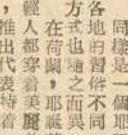 同樣是一個耶
各地的習俗不同
方式也隨之而異
在荷蘭，耶誕
輕人都穿着美麗
推出代表持着